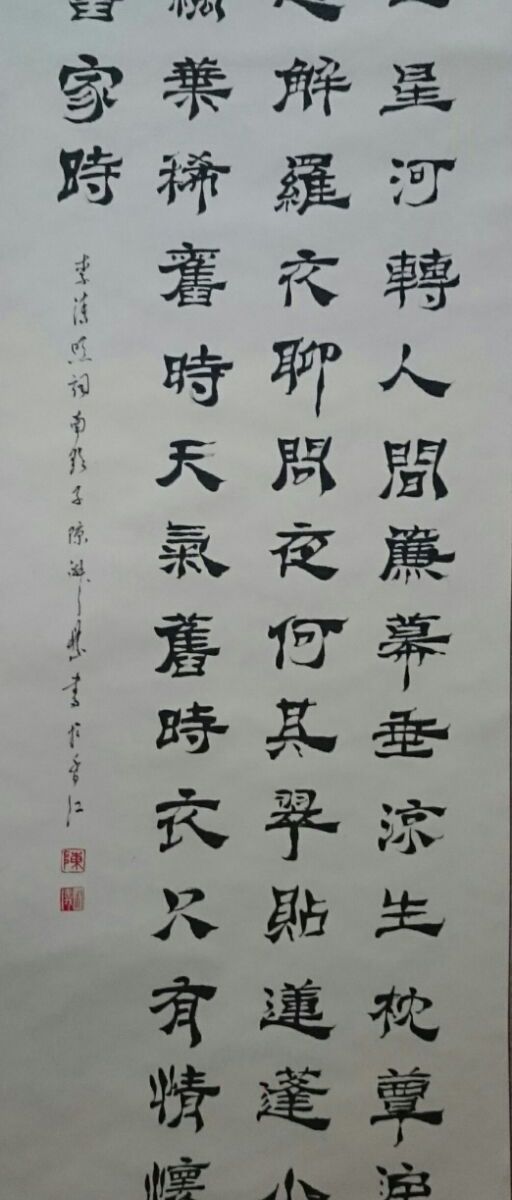 上星河轉人間簾幕垂涼生枕簟淚
起解羅衣聊問夜何其翠貼蓮蓬小
藕葉稀舊時天氣舊時衣只有情懷
舊家時
李清照詞南歌子陳書於香江
陳